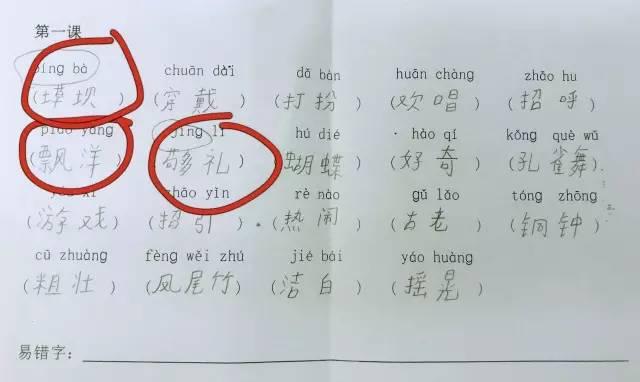 第一课
píng bà chuān dài dǎ bàn huān chàng zhāo hu
( 坝 ) (穿 戴 ) (打 扮 ) (欢 唱 ) (招 呼 )
piāo yáng jìng lǐ hú dié hào qí kǒng què wǔ
(飘 洋 ) ( 礼 ) (蝴 蝶 ) (好 奇 ) (孔 雀 舞)
yóu xì zhāo yǐn rè nào gǔ lǎo tóng zhōng
(游 戏 ) (招 引 ) (热 闹 ) (古 老 ) (铜 钟 )
cū zhuàng fèng wěi zhú jié bái yáo huàng
(粗 壮 ) (凤 尾 竹 ) (洁 白 ) (摇 晃 )
易错字：